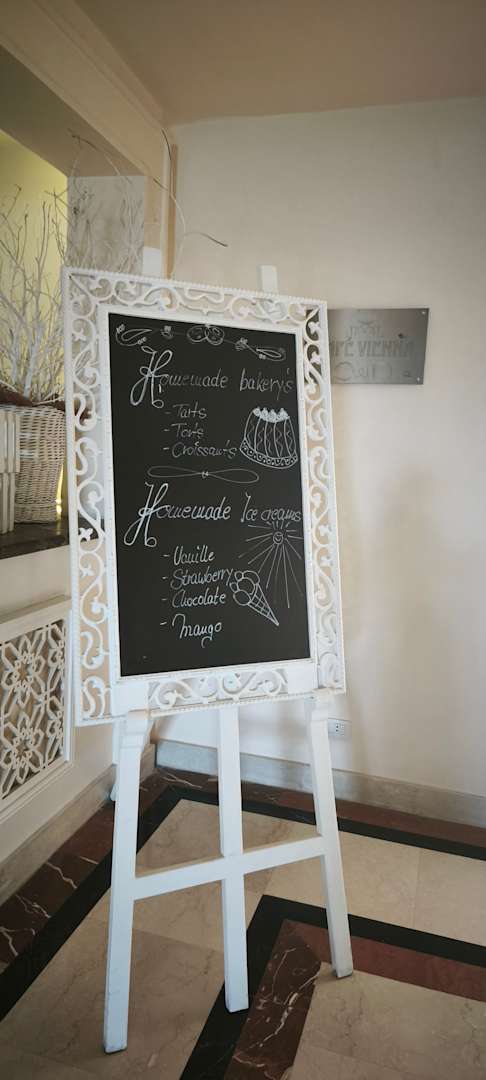 Homemade bakery's
- Tarts
- Torts
- Croissants
Homemade Ice creams
- Vanille
- Strawberry
- Chocolate
- Mango
CAFÉ VIENNA